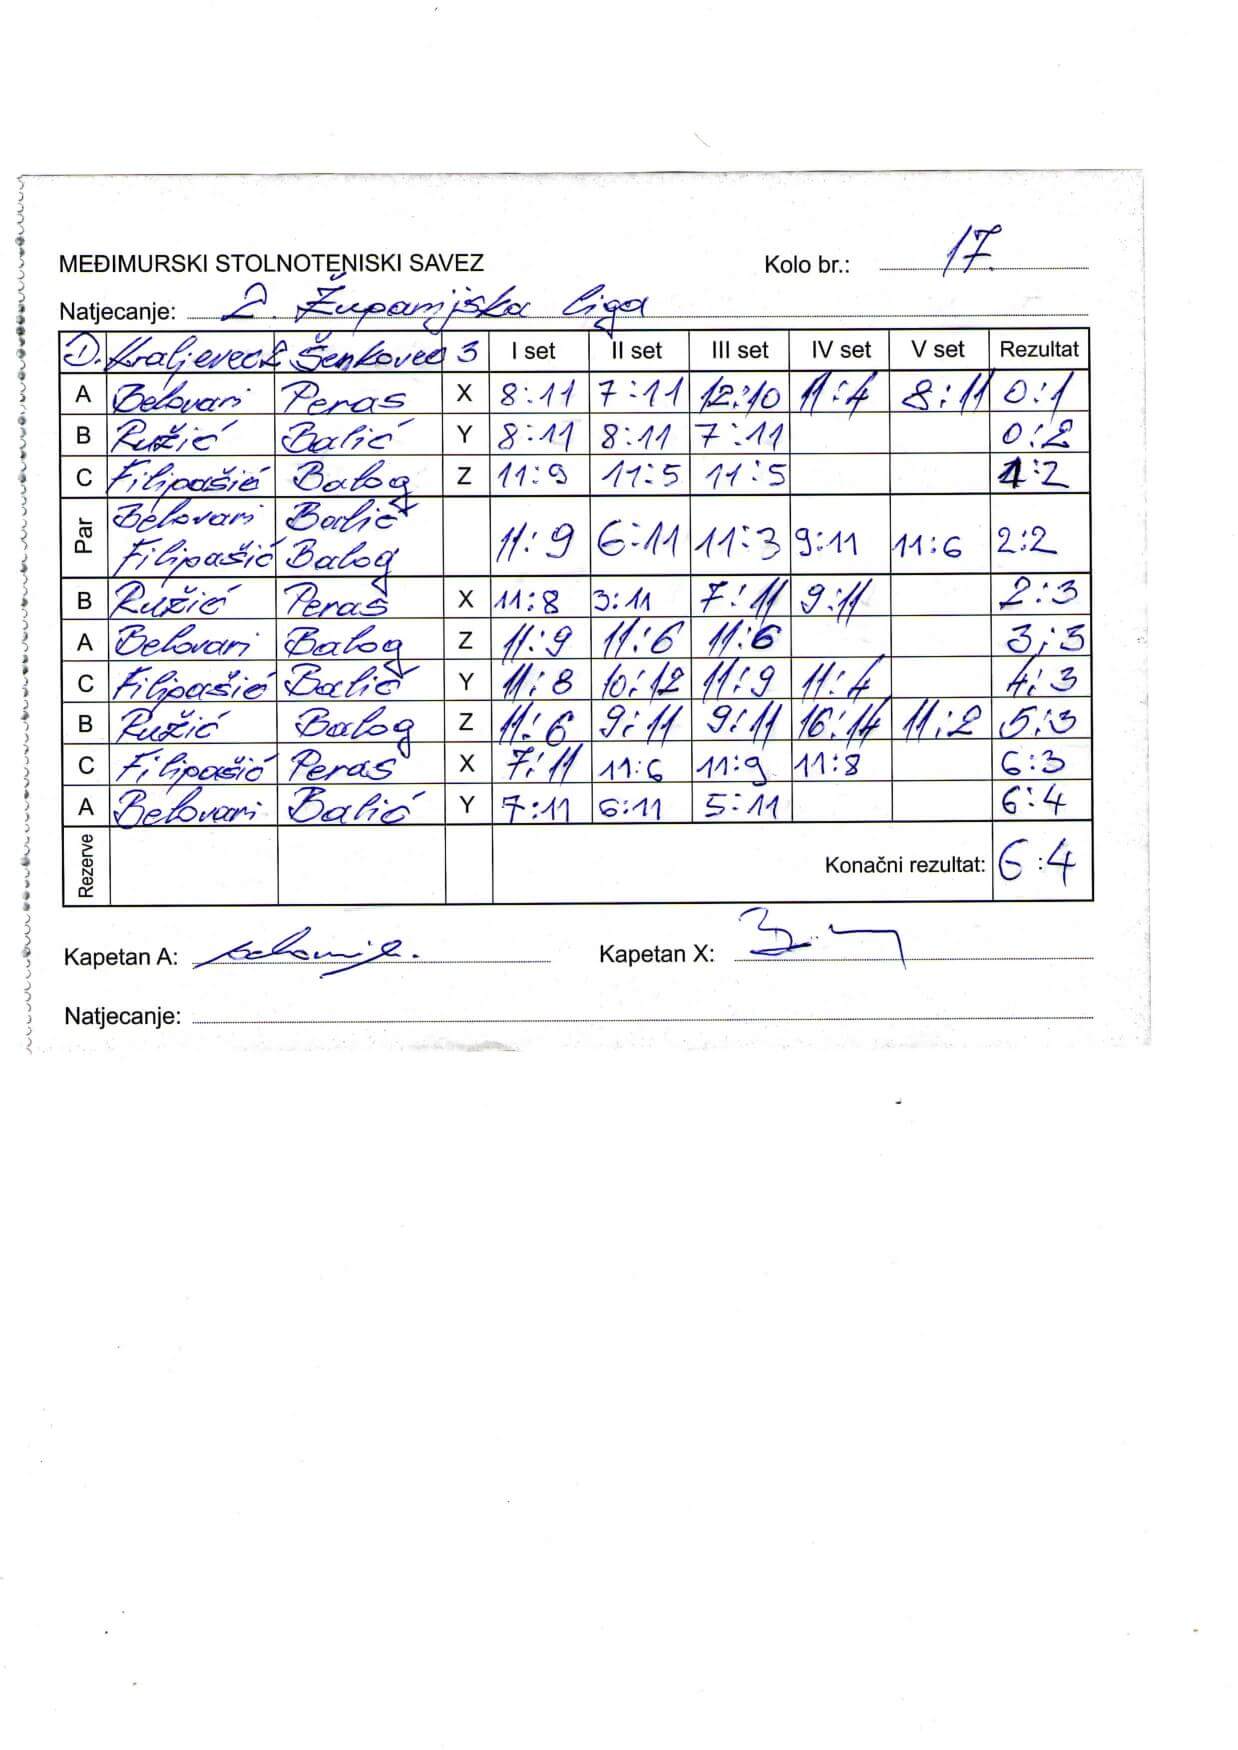 MEĐIMURSKI STOLNOTENISKI SAVEZ Kolo br.: 17.
Natjecanje: 2. Županijska liga
D. Kraljevec 2 Šenkovec 3 I set II set III set IV set V set Rezultat
A Belovari Peras X 8:11 7:11 12:10 11:4 8:11 0:1
B Ružić Balić Y 8:11 8:11 7:11 0:2
C Filipašić Balog Z 11:9 11:5 11:5 1:2
Par Belovari Balić
Filipašić Balog 11:9 6:11 11:3 9:11 11:6 2:2
B Ružić Peras X 11:8 3:11 7:11 9:11 2:3
A Belovari Balog Z 11:9 11:6 11:6 3:3
C Filipašić Balić Y 11:8 10:12 11:9 11:4 4:3
B Ružić Balog Z 11:6 9:11 9:11 16:14 11:2 5:3
C Filipašić Peras X 7:11 11:6 11:9 11:8 6:3
A Belovari Balić Y 7:11 6:11 5:11 6:4
Rezerve Konačni rezultat: 6:4
Kapetan A: Kapetan X:
Natjecanje: